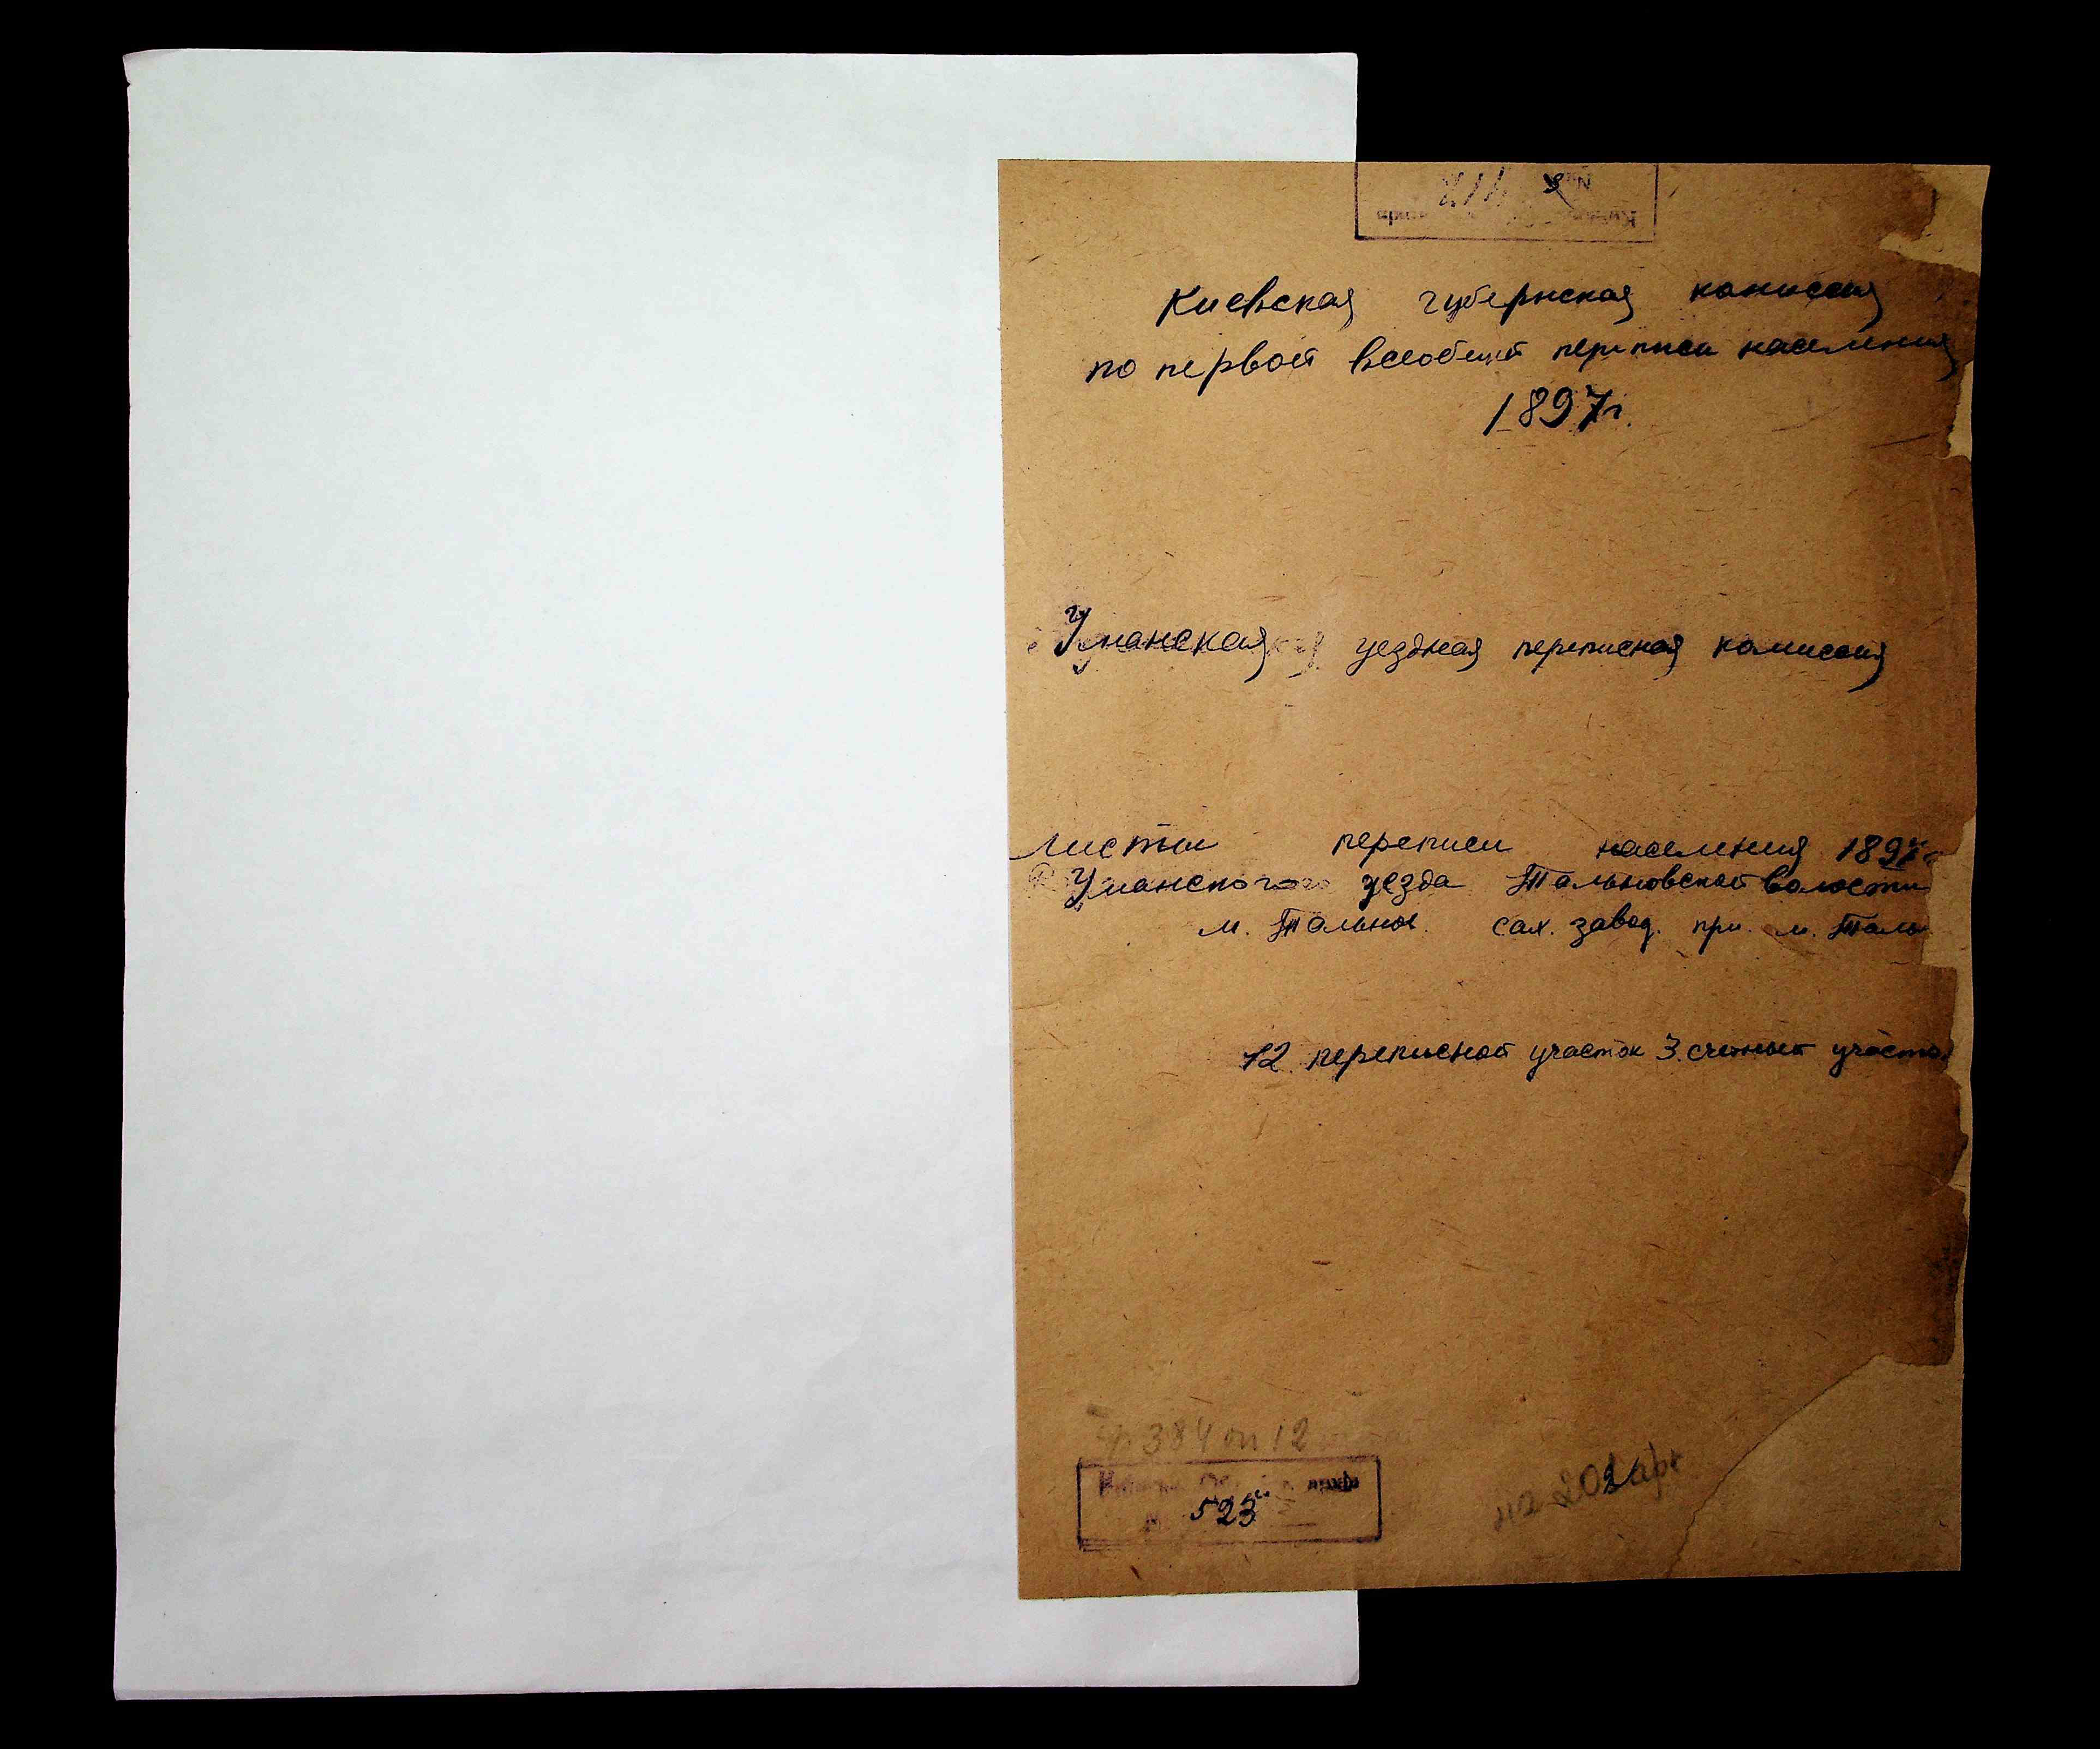 Киевская губернская комиссия
по первой всеобщей переписи населения
1897г.
Уманская уездная переписная комиссия
Листы переписи населения 1897г
Уманского уезда Тальновской волости
м. Тальное. сах. завод. при. м. Таль
12 переписной участок 3. счетный участо
ф. 384 оп 12
523
на 202 арк